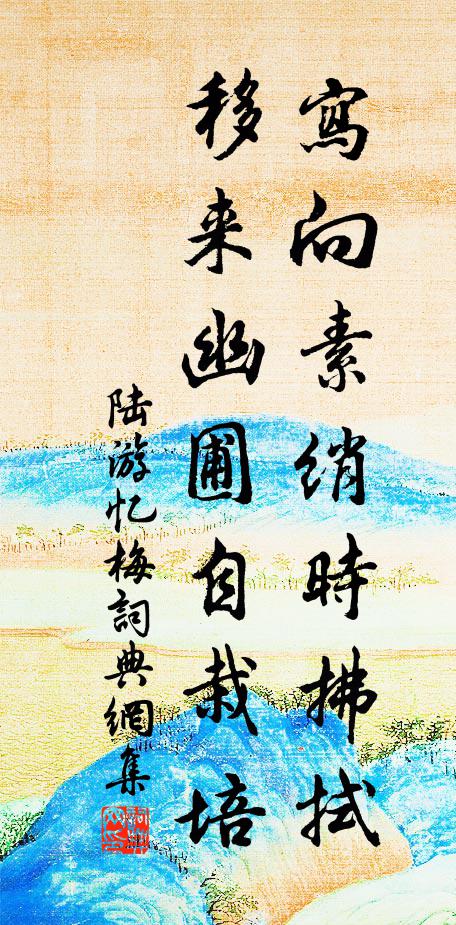 寫向素綃時拂拭
移来幽圃自栽培
陆游忆梅詞典網集